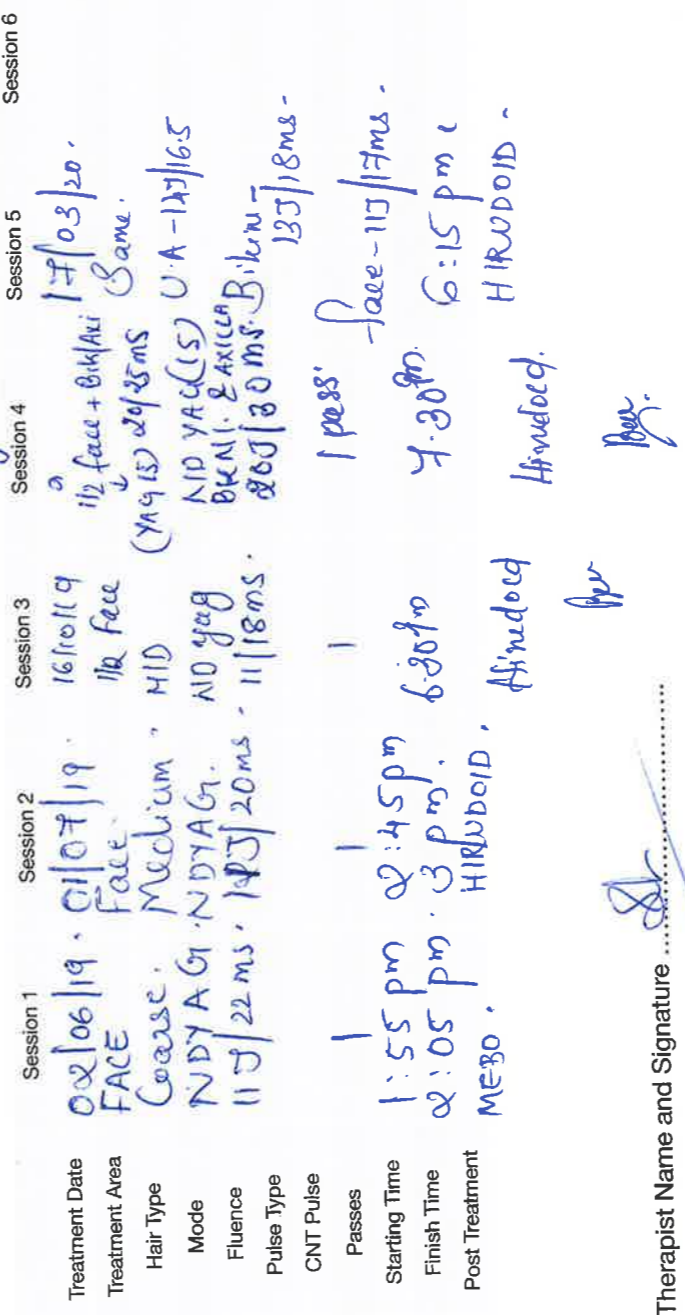 Session 1 Session 2 Session 3 Session 4 Session 5 Session 6
Treatment Date 02/06/19 . 01/07/19 . 16/10/19 17/03/20 .
Treatment Area FACE Face . 1/2 Face 1/2 face + Bik/Axi Same .
Hair Type Coarse . Medium . MID (YAG 15) 20/25ms U.A - 14J/16.5
Mode NDYAG . NDYAG . ND yag ND YAG (15)
BKNI. & AXILLA
Fluence 11J/22 ms . 12J/20ms . 11/18ms . 20J/30ms . Bikini -
Pulse Type 13J/18ms -
CNT Pulse
Passes 1 1 1 1 pass face - 11J/17ms .
Starting Time 1:55 pm 2:45pm 6:30pm 7.30pm 6:15 pm
Finish Time 2:05 pm . 3 pm .
Post Treatment MEBO . HIRUDOID . Hirudoid Hirudoid . HIRUDOID .
Therapist Name and Signature